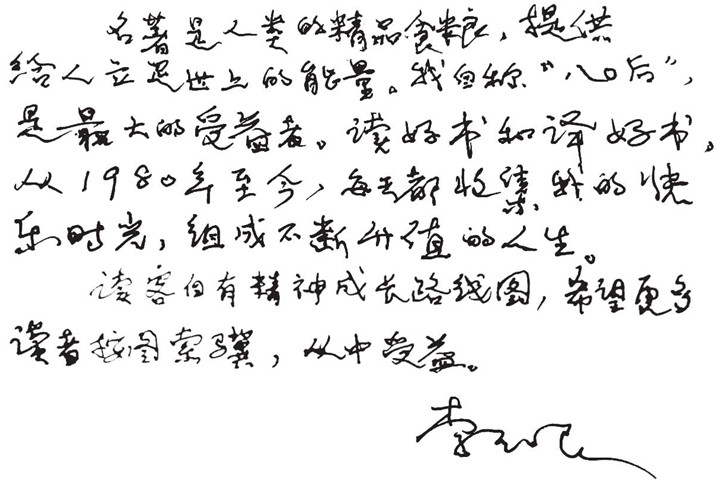 名著是人类的精品食粮，提供
给人立足世上的能量。我自称“八〇后”，
是最大的受益者。读好书和译好书，
从1980年至今，每天都收集我的快
乐时光，组成不断升值的人生。
读客自有精神成长路线图，希望更多
读者按图索骥，从中受益。
李玉民